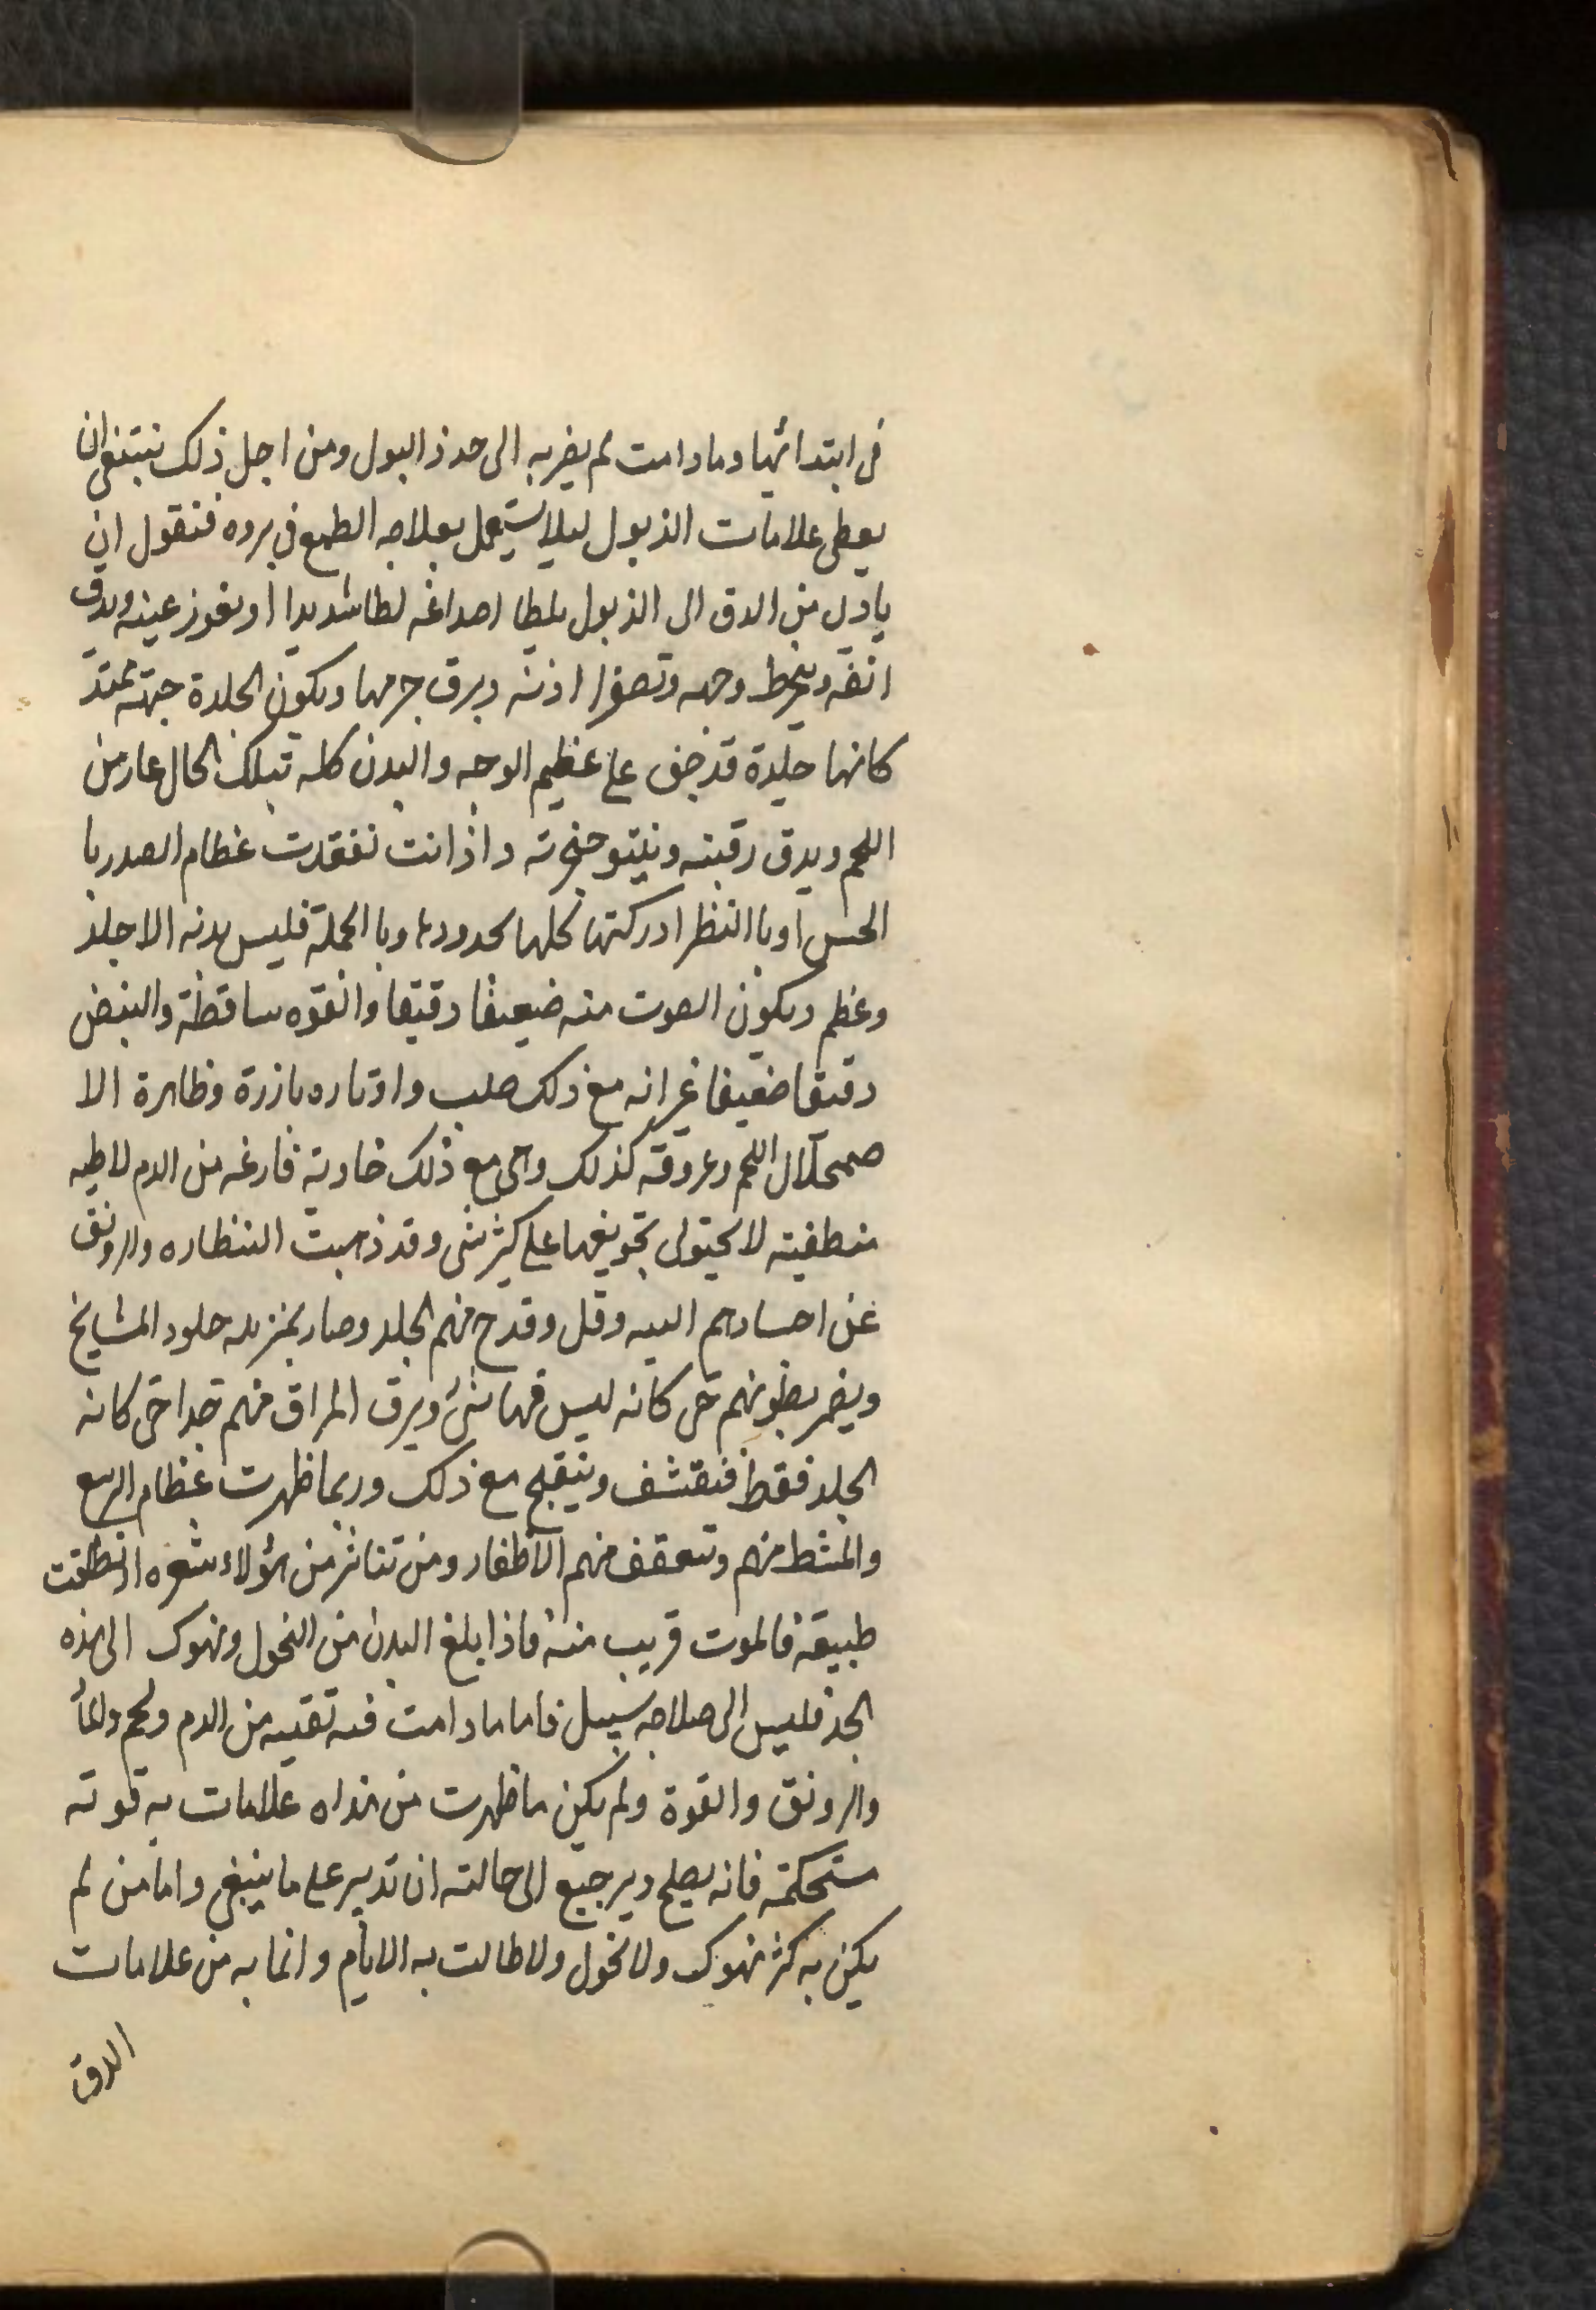 فى ابتدائها وما دامت لم يضربه الى حد ذ البول ومن اجل ذلك نبتغى ان
يعطى علامات الذبول ليلا يستعمل بعلاجه الطمع فى بروه فنقول ان
يا دل من الدق الى الذبول يلطا اصداغه لطا شديدا او يغوز عينه ويدق
انفه وينخرط وجهه وتصفرا اذنه ويرق جرمها ويكون الجلدة جبهته ممتد
كانها جليدة قد جف على عظيم الوجه والبدن كله تبلك الحال عار من
اللحم ويدق رقبته وينتو حنجرته واذ انت تفقدت عظام الصدر با
الحس او با النظر ادركتها كلها لحدودها وبا الجملة فليس بدنه الا جلد
وعظم ويكون الصوت منه ضعيفا دقيقا وانقوه ساقطة والنبض
دقيقا ضعيفا غير انه مع ذلك صلب واوتاره بازرة وظاهرة الا
صمحلال اللحم وعروقه كذلك وهى مع ذلك خاوية فارغه من الدم لاطيه
منطفيته لا يحتوى تجويفها على كثير شى وقد ذهبت النظاره والرونق
عن احسادهم البيه وقل وقدح منهم الجلد وصار بمنزله جلود المشايخ
ويضمر بطونهم حتى كانه ليس فيها شئ ويرق المراق منهم جدا حتى كانه
الجلد فقط فنقشف وينقبح مع ذلك وربما ظهرت عظام الرسع
والمشط منهم وتتعقف منهم الاظفار ومن تناثر من هؤلاء شعره او انطلقت
طبيعة فالموت قريب منه فاذا بلغ البدن من النحول ونهوك الى هذه
الحد فليس الى صلاجه سبيل فاما ما دامت فيه تقيه من الدم ولحم وانما
والرونق والقوة ولم يكن ما ظهرت من هذاه علامات به قوته
مستحكمته فانه يصلح ويرجيع الى حالته ان تدبير على ما ينبغى واما من لم
يكن به كثر نهوك ولا نحول ولا طالت به الايام وانما به من علامات
الدق